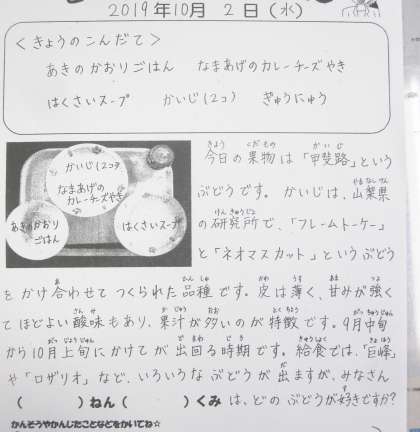 2019年10月 2日(水)
<きょうのこんだて>
あきのかおりごはん なまあげのカレーチーズやき
はくさいスープ かいじ(2コ) ぎゅうにゅう
かいじ(2コ)
なまあげの
カレーチーズやき
あきのかおり
ごはん
はくさいスープ
今日の果物は「甲斐路」という
ぶどうです。かいじは、山梨県
の研究所で、「フレームトーケー」
と「ネオマスカット」というぶどう
をかけ合わせてつくられた品種です。皮は薄く、甘みが強く
てほどよい酸味もあり、果汁が多いのが特徴です。9月中旬
から10月上旬にかけてが出回る時期です。給食では、「巨峰」
や「ロザリオ」など、いろいろなぶどうが出ますが、みなさん
( )ねん( )くみは、どのぶどうが好きですか?
かんそうやかんじたことなどをかいてね☆